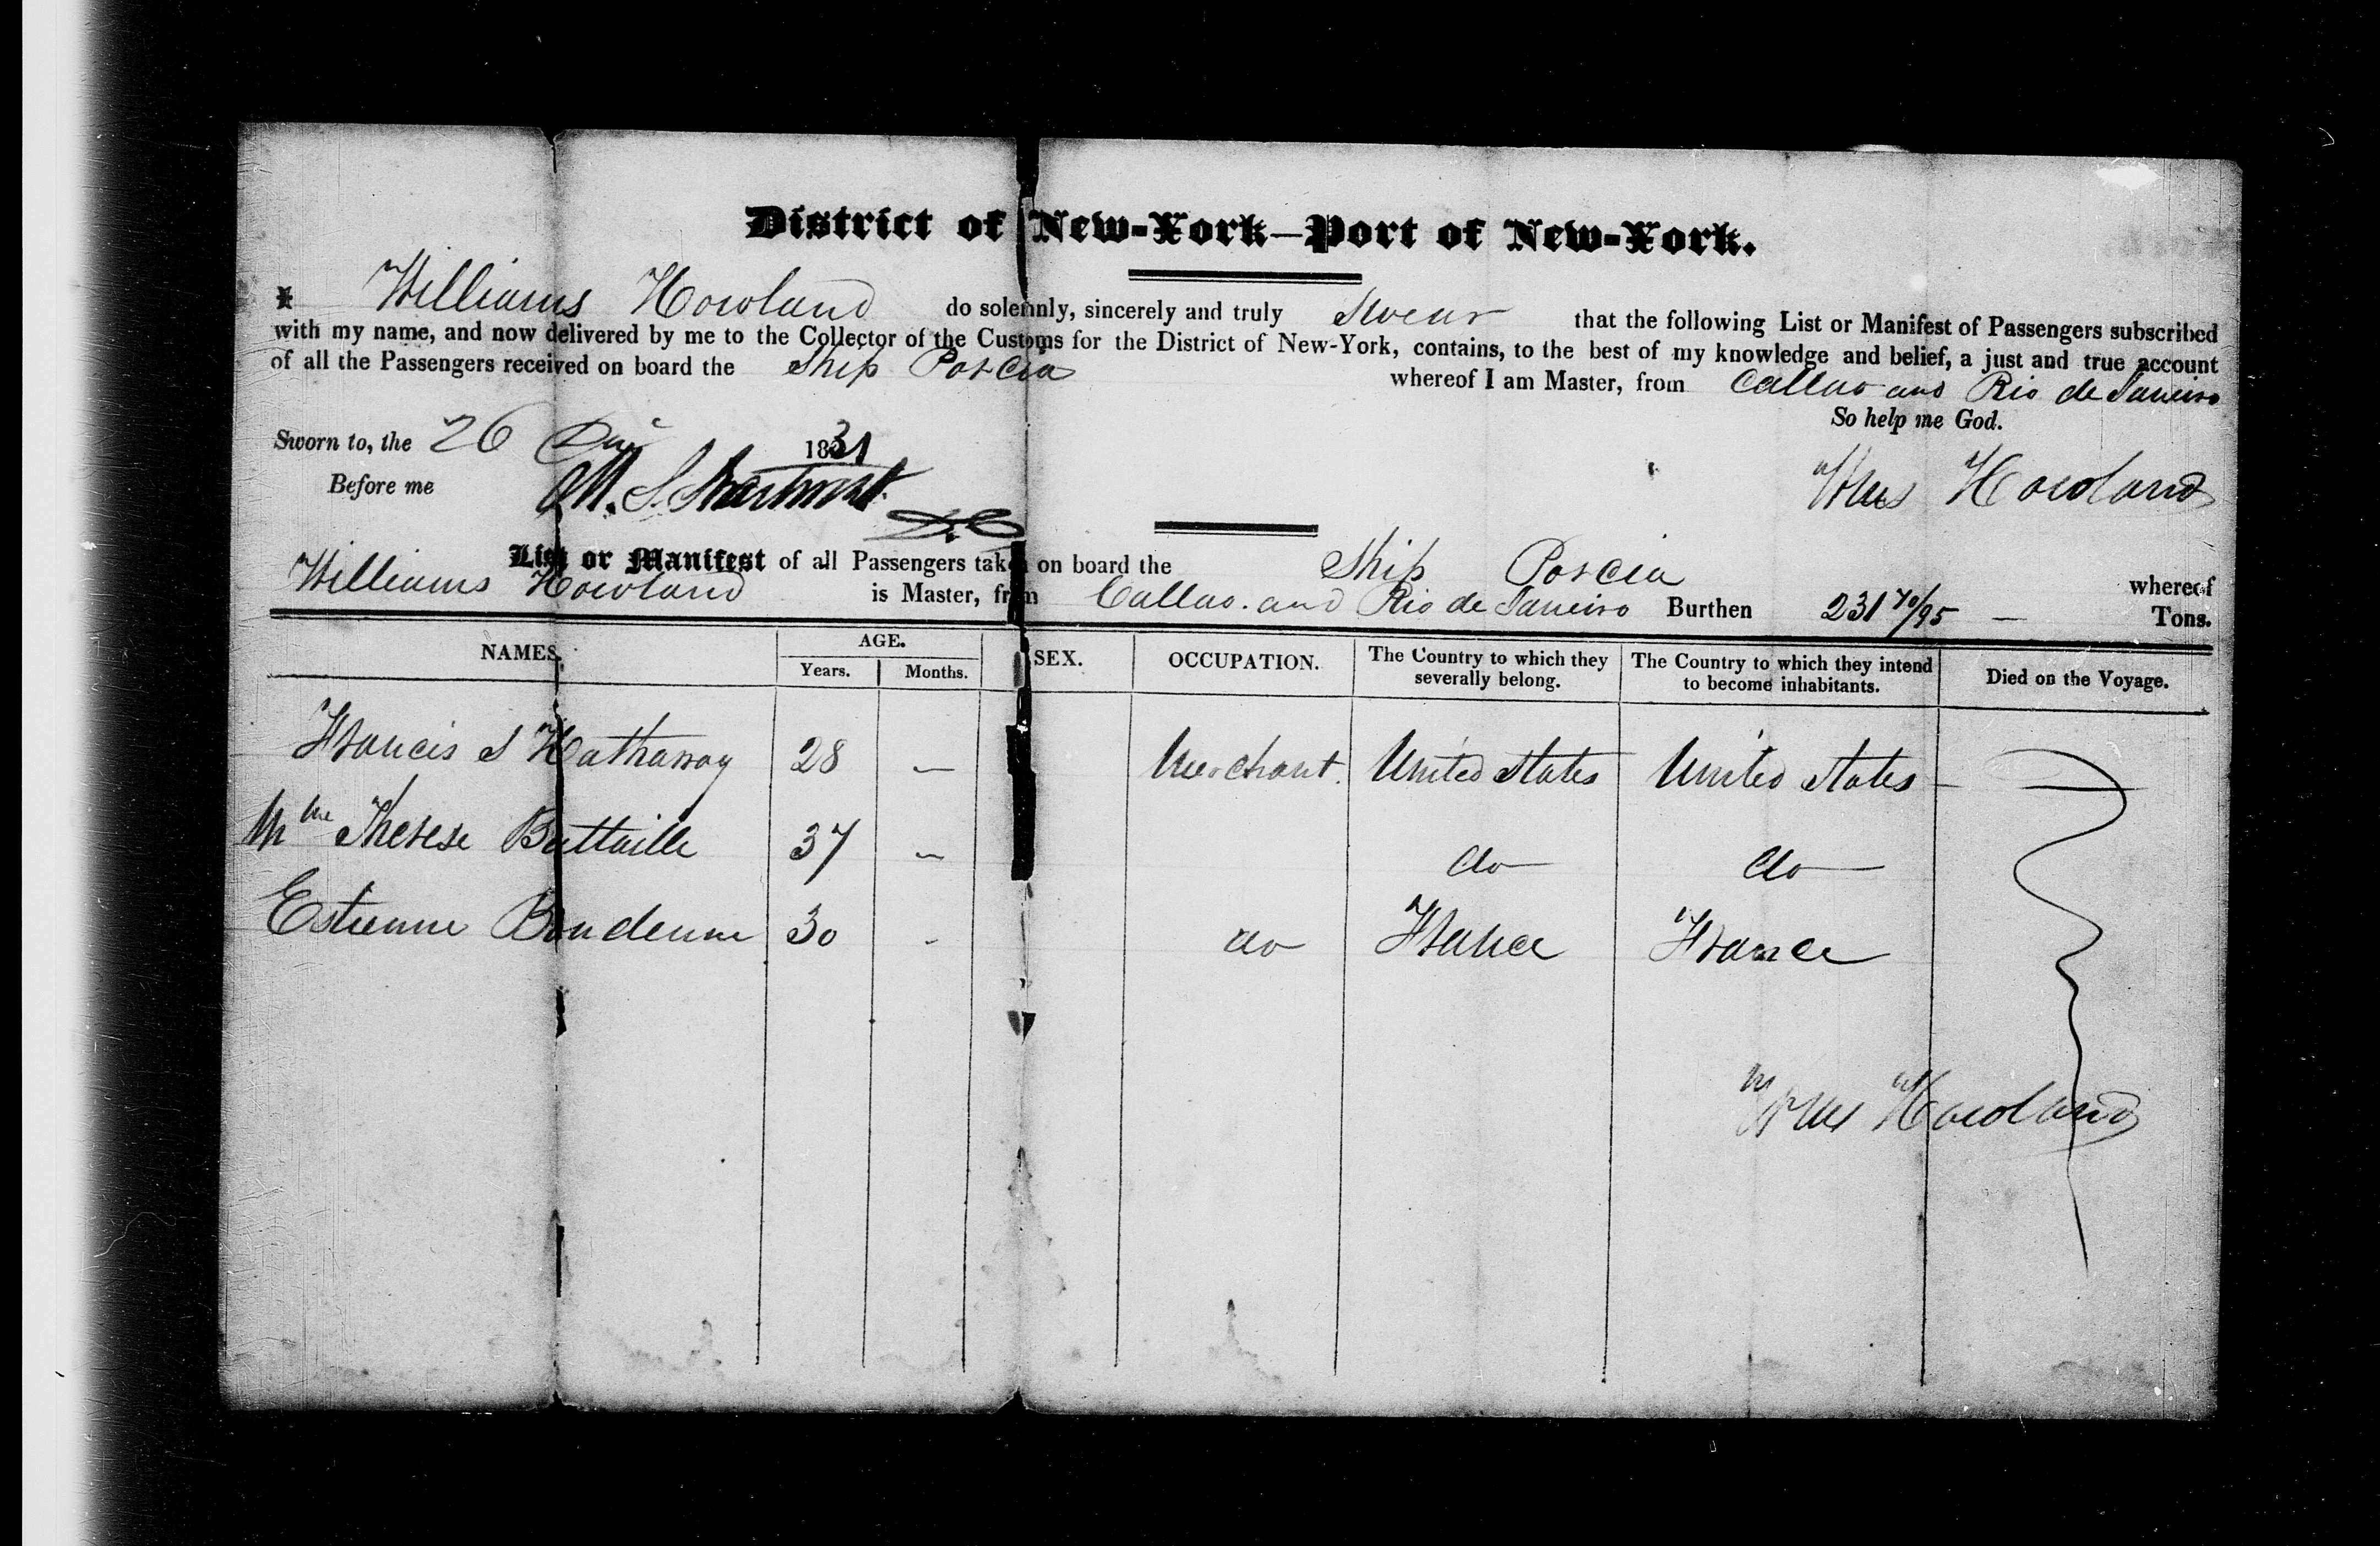 District of New-York—Port of New-York.
I Williams Howland do solemnly, sincerely and truly Swear that the following List or Manifest of Passengers subscribed
with my name, and now delivered by me to the Collector of the Customs for the District of New-York, contains, to the best of my knowledge and belief, a just and true account
of all the Passengers received on board the Ship Porcia whereof I am Master, from Callao and Rio de Janeiro
So help me God.
Sworn to, the 26 1831
Before me M. S. D.C
Wms Howland
List or Manifest of all Passengers taken on board the Ship Porcia whereof
Williams Howland is Master, from Callao. and Rio de Janeiro Burthen 231 70/95 — Tons.
NAMES. AGE. SEX. OCCUPATION. The Country to which they severally belong. The Country to which they intend to become inhabitants. Died on the Voyage.
Years. Months.
Francis S Hathaway 28 — Merchant. United States United States —
Mme Therese Battaille 37 — do do
Estienne 30 - do France France
Wms Howland